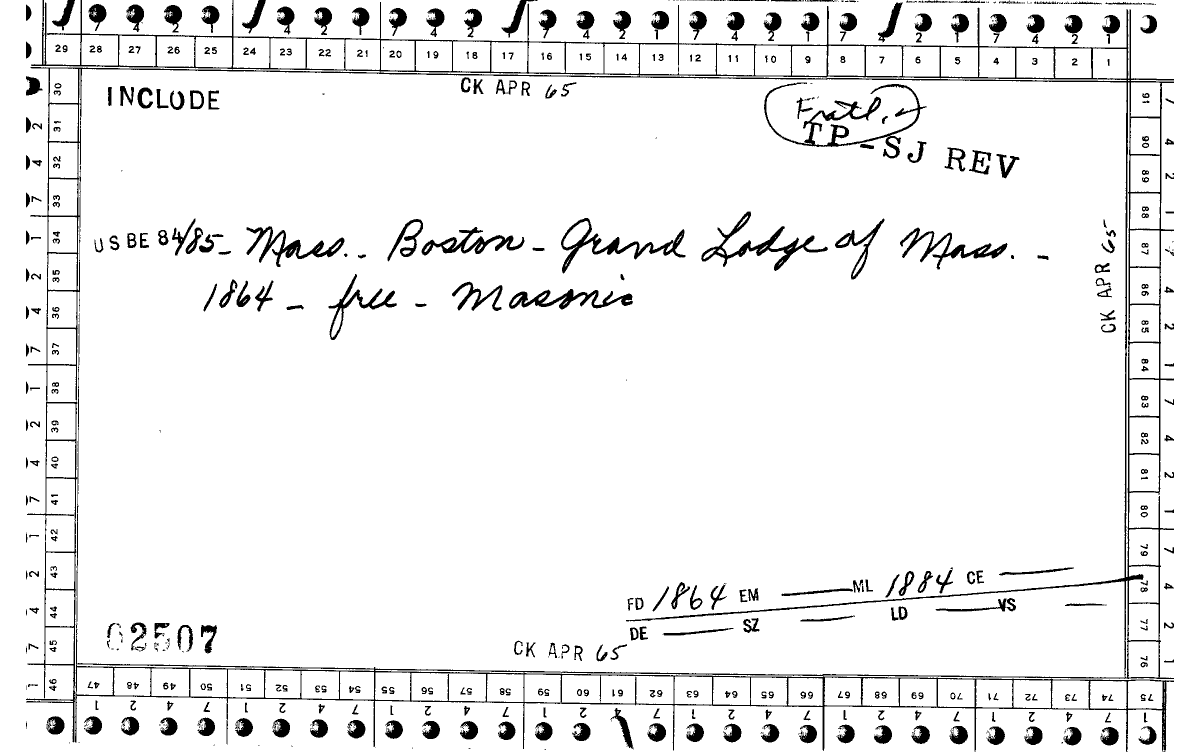 7 4 2 1 7 4 2 1 7 4 2 1 7 4 2 1 7 4 2 1
29 28 27 26 25 24 23 22 21 20 19 18 17 16 15 14 13 12 11 10 9 8 7 6 5 4 3 2 1
CK APR 65
INCLUDE
Fratl.
TP-SJ REV
USBE 84/85- Mass.. Boston - Grand Lodge of Mass. -
1864 - free - Masonic
CK APR 65
FD 1864 EM ML 1884 CE
DE SZ LD VS
02507
CK APR 65
30 31 32 33 34 35 36 37 38 39 40 41 42 43 44 45 46
91 90 89 88 87 86 85 84 83 82 81 80 79 78 77 76
47 48 49 50 51 52 53 54 55 56 57 58 59 60 61 62 63 64 65 66 67 68 69 70 71 72 73 74 75